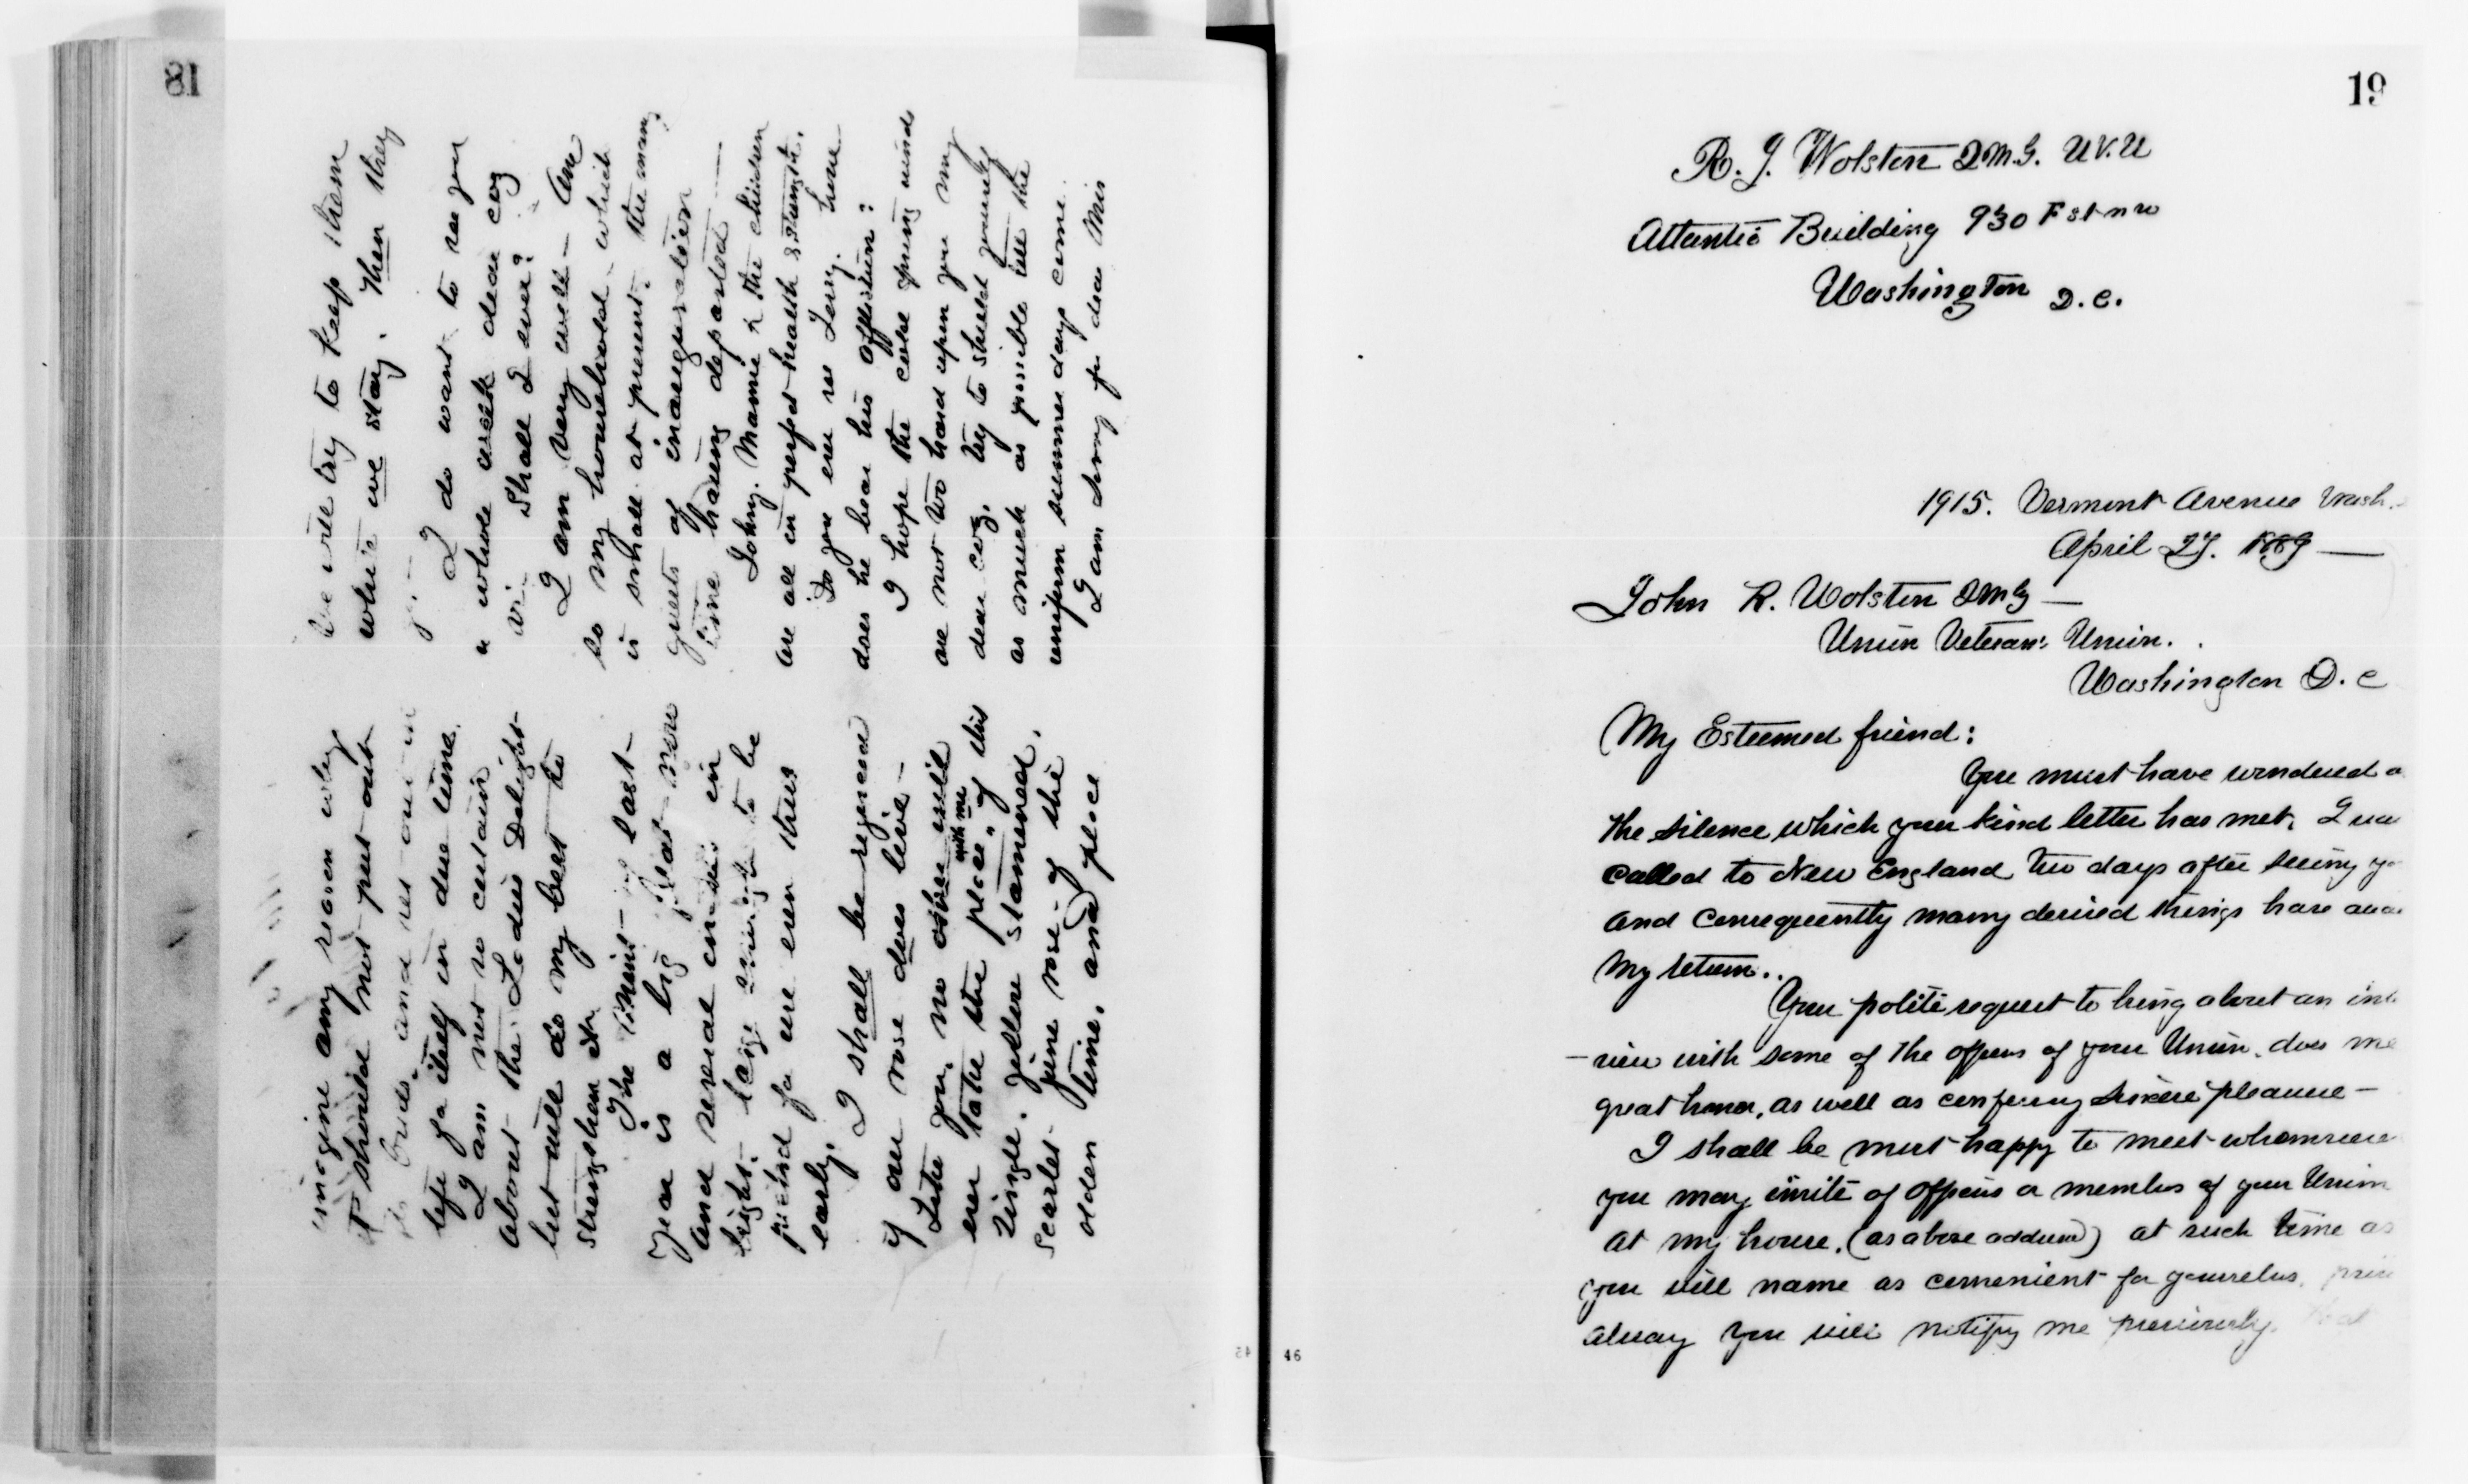 18
imagine any reason why
it should not put out
its buds, and res out in
life for itself in due time.
I am not so certain
about the La dies Delight
but will do my best to
strengthen it.
The
Year is a big
and several in
light. large enough to be
picked for we even thus
early.
I shall be rejoiced
if our rose does live –
Like you, no other will
ever take the place "with me" of this
single. yellow stamened,
scarlet June rose – of the
olden time, and place
We will try to keep them
while we stay. Then they
go. –
I do want to see you
a whole week dear coz
Shall I ever?
I am very well – are
so my household – which
is small at present. the many
guests of inauguration
time having departed —
Johny. Mamie & the children
are all in perfect health & strength.
Do you ever see Leny. how
does he bear his affliction?
I hope the cold spring winds
are not too hard upon you my
dear coz, try to shield yourself
as much as possible till the
uniform summer days come.
I am sorry for dear Mis
19
R. J. Wolsten Q.M.G. U.V.U
Atlantic Building 930 F st n w
Washington D.C.
1915. Vermont Avenue Wash.
April 27. 1889 —
John R. Wolsten QMG —
Union Veteran's Union.
Washington D.C
My Esteemed friend:
You must have wondered a
the silence which your kind letter has met. I was
called to New England two days after seeing yo
and consequently many desired things have awa
my return..
Your polite request to bring about an int
– view with some of the officers of your Union. does me
great honor, as well as conferring sincere pleasure –
I shall be most happy to meet whomsoever
you may invite of officers or members of your Union
at my house, (as above address) at such time as
you will name as convenient for yourselves.
alway you will notify me previously. that
46
45